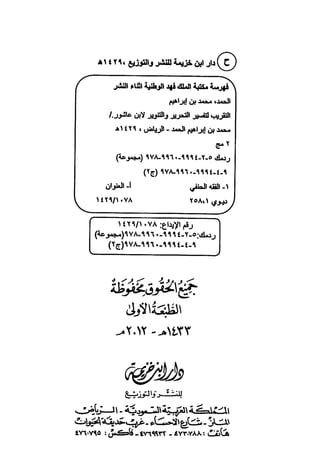 ح دار ابن خزيمة للنشر والتوزيع ، ١٤٢٩هـ
فهرسة مكتبة الملك فهد الوطنية أثناء النشر
الحمد، محمد بن إبراهيم
التقريب لتفسير التحرير والتنوير لابن عاشور./
محمد بن إبراهيم الحمد - الرياض ، ١٤٢٩هـ
٢ مج
ردمك ٥-٢-٩٩٩٤-٩٩٦٠-٩٧٨ (مجموعة)
٩-٤-٩٩٩٤-٩٩٦٠-٩٧٨ (ج٢)
١- الفقه الحنفي أ- العنوان
ديوي ٢٥٨،١ ١٤٢٩/١٠٧٨
رقم الإيداع: ١٤٢٩/١٠٧٨
ردمك:٥-٢-٩٩٩٤-٩٩٦٠-٩٧٨(مجموعة)
٩-٤-٩٩٩٤-٩٩٦٠-٩٧٨(ج٢)
جميع الحقوق محفوظة
الطبعة الأولى
١٤٣٣هـ - ٢٠١٢مـ
دار ابن خزيمة
للنشر والتوزيع
المملكة العربية السعودية - الرياض
الملز - شارع الإحساء - غرب حديقة الحيوان
هاتف: ٤٧٣٠٧٨٨ - ٤٧٦٩٩٣٢ - فاكس: ٤٧٦٠٧٩٥